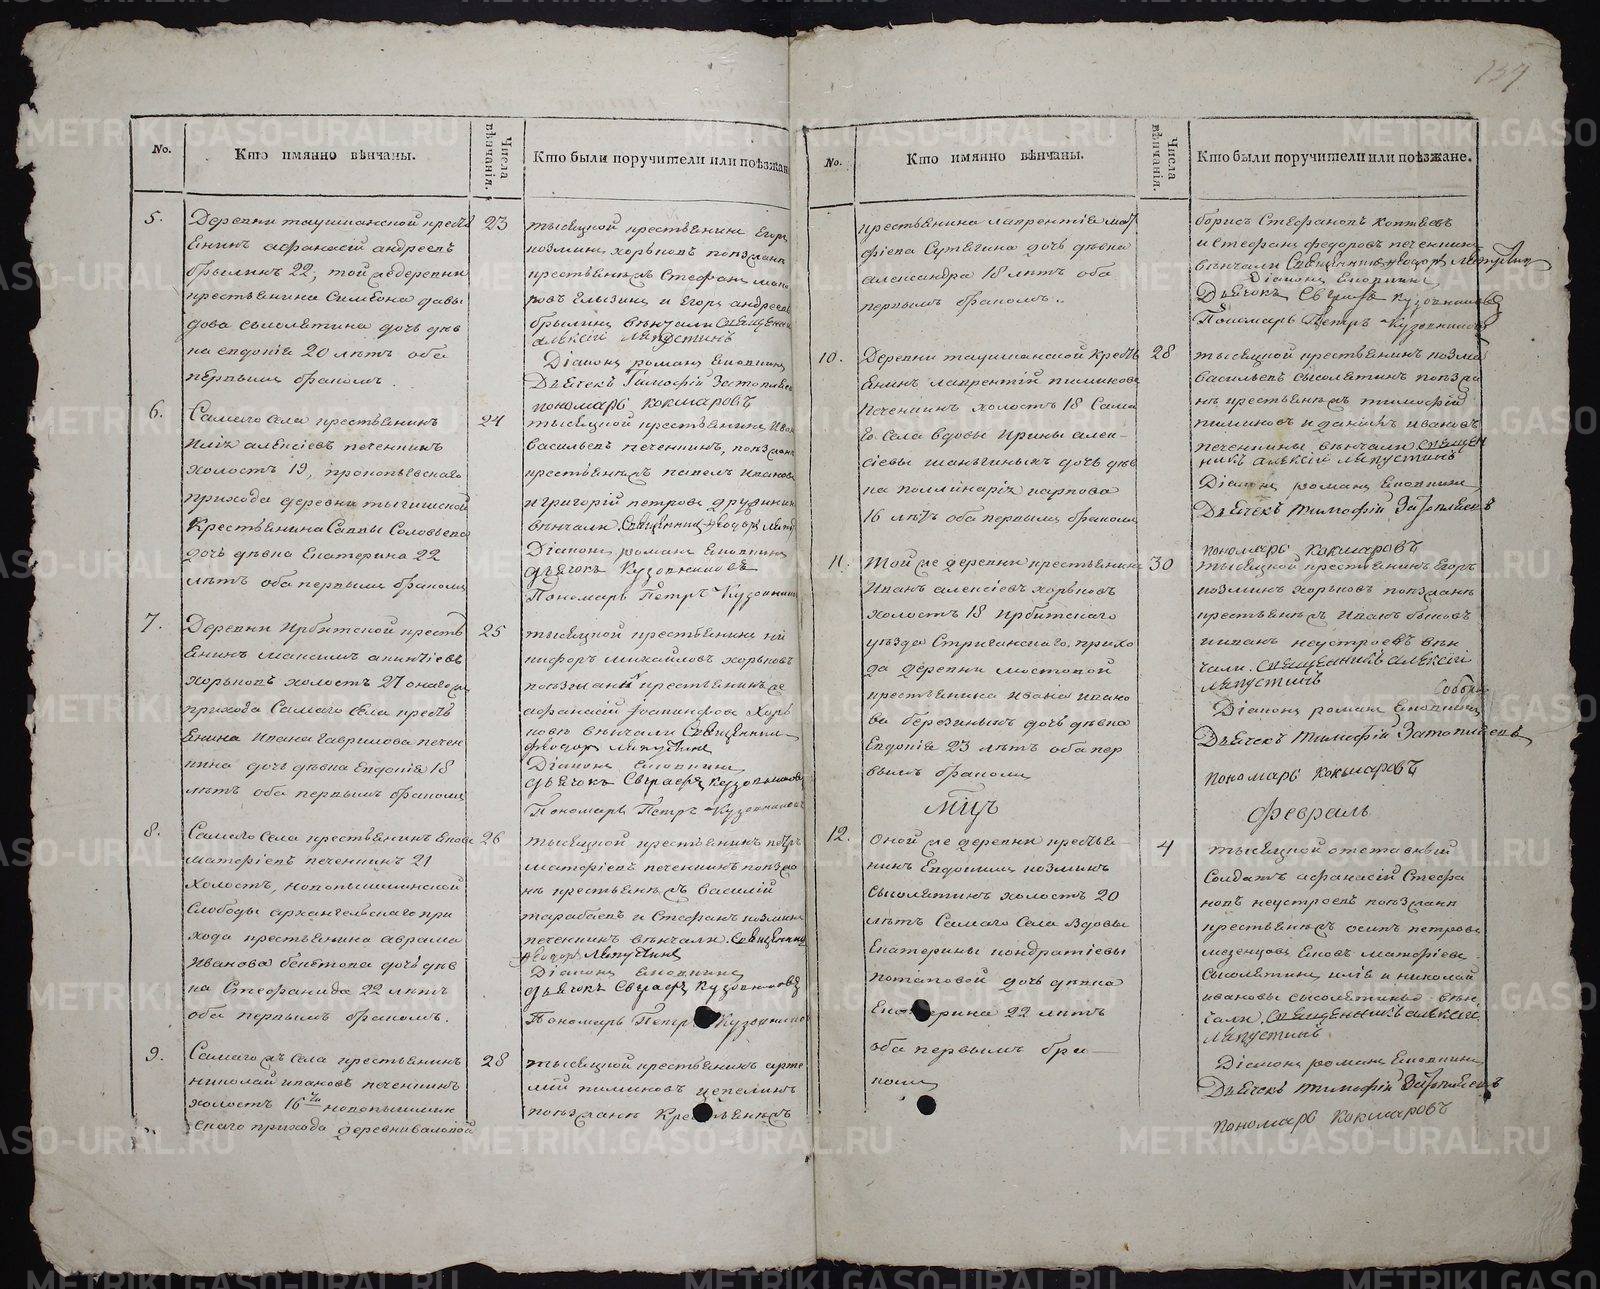 139
No.
Кто имянно вѣнчаны.
Числа вѣнчанія.
Кто были поручители или поѣзжан
5.
Деревни таушканской кресть
23
янинъ афанасій андреевъ
брылинъ 22, той же деревни
крестьянина Симеона давы
дова сысолятина дочь дѣв
ка евдокія 20 лѣтъ оба
первымъ бракомъ.
тысяцкой крестьянинъ Егоръ
козминъ хорьковъ поѣзжан
крестьянѣ Стефанъ
Елызинъ и Егоръ андреевъ
брылинъ вѣнчали священни
алексій Ляпустинъ
Діаконъ романъ
Дьячекъ Тимофій Затопляев
пономарь Кокшаровъ
6.
Самаго Села крестьянинъ
24
Илія алексіевъ печенкинъ
холостъ 19,
прихода деревни
Крестьянина Саввы Соловьева
дочь дѣвка Екатерина 22
лѣтъ оба первымъ бракомъ
тысяцкой крестьянинъ Иван
васильевъ печенкинъ, поѣзжан
крестьянѣ павелъ Ивановъ
и григорій петровъ дружинин
вѣнчали Священникъ Феодоръ Ляпу
Діаконъ романъ
дьячокъ Кузовниковъ
Пономарь Петръ Кузовников
7.
Деревни Ирбитской кресть
25
янинъ Максимъ
хорьковъ холостъ 27 онаго же
прихода Самаго Села кресть
янина Ивана гаврилова печен
кина дочь дѣвка Евдокія 18
лѣтъ оба первымъ бракомъ
тысяцкой крестьянинъ ни
кифоръ михайловъ хорьковъ
поѣзжаній крестьянинъ же
афанасій Хорь
ковъ вѣнчали Священник
Феодоръ Ляпустин
Діаконъ
дьячокъ Кузовников
Пономарь Петръ Кузовников
8.
Самаго Села крестьянинъ Яков
26
матфіевъ печенкинъ 21
холостъ, новопышминской
Слободы архангельскаго при
хода крестьянина аврама
Иванова дочь дѣв
ка Стефанида 22 лѣтъ
оба первымъ бракомъ.
тысяцкой крестьянинъ петръ
матфіевъ печенкинъ поѣзжа
нѣ крестьянѣ василій
тарабаевъ и Стефанъ козминъ
печенкинъ вѣнчали Священни
Феодоръ Ляпустин
Діаконъ
дьячокъ Кузовников
Пономарь Петръ Кузовников
9.
Самаго жъ села крестьянинъ
28
николай ивановъ печенкинъ
холостъ 16 новопышмин
скаго прихода деревни валовой
тысяцкой крестьянинъ арте
мій пимиковъ
поѣзжанѣ Крестьянѣ
No.
Кто имянно вѣнчаны.
Числа вѣнчанія.
Кто были поручители или поѣзжане.
крестьянина лаврентія мат
фіева Сутягина дочь дѣвка
александра 18 лѣтъ оба
первымъ бракомъ.
борисъ Стефановъ Коптяевъ
и Стефанъ федоровъ печенкинъ
вѣнчали Священникъ Феодоръ Ляпустин
Діаконъ
Дьячокъ Кузовников
Пономарь Петръ Кузовников
10.
Деревни таушканской Кресть
28
янинъ лаврентій пимиковъ
печенкинъ холостъ 18 Сама
го Села вдовы Ирины алек-
сіевы дочь дѣв
ка карпова
16 лѣтъ оба первымъ бракомъ
тысяцкой крестьянинъ козма
васильевъ сысолятинъ поѣзжа
нѣ крестьянѣ тимофій
пимиковъ и данило ивановъ
печенкины вѣнчали священ
никъ алексій ляпустинъ
Діаконъ романъ
Дьячекъ тимофій Затопляевъ
пономарь Кокшаровъ
11.
Той же деревни крестьянинъ
30
Иванъ алексіевъ хорьковъ
холостъ 18 Ирбитскаго
уѣзда Стриганскаго прихо
да деревни мостовой
крестьянина ивана ивано
ва березина дочь дѣвка
Евдокія 23 лѣтъ оба пер
вымъ бракомъ
тысяцкой крестьянинъ Егоръ
козминъ хорьковъ поѣзжанѣ
крестьянѣ Иванъ быковъ
иванъ неустроевъ вѣн
чали священникъ алексій
ляпустинъ
Діаконъ романъ
Дьячекъ тимофій Затопляевъ
пономарь Кокшаровъ
Мцъ
Февраль
12.
Оной же деревни кресть-
4
нинъ Евдокимъ козминъ
сысолятинъ холостъ 20
лѣтъ Самаго Села вдовы
Екатерины кондратіевы
потаповой дочь дѣвка
Екатерина 22 лѣтъ
оба первымъ бра-
комъ
тысяцкой отставный
солдатъ афанасій Стефа
новъ неустроевъ поѣзжанѣ
крестьянѣ осипъ петровъ
мезенцовъ Яковъ матфіевъ
Сысолятинъ илія и николай
ивановы сысолятины вѣн
чали священникъ алексій
ляпустинъ
Діаконъ романъ
Дьячекъ тимофій Затопляевъ
пономарь Кокшаровъ
METRIKI.GASO-URAL.RU